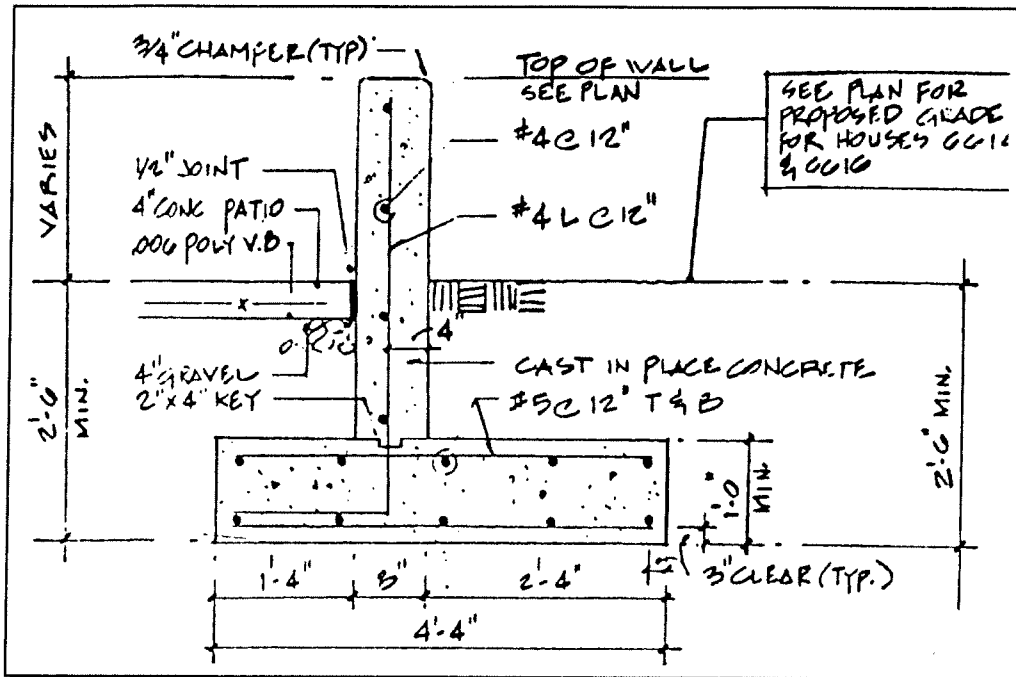 3/4" CHAMFER (TYP)
TOP OF WALL
SEE PLAN
SEE PLAN FOR
PROPOSED GRADE
FOR HOUSES
&
#4 @ 12"
VARIES
1/2" JOINT
4" CONC PATIO
.006 POLY V.B
#4 L @ 12"
x
4"
4" GRAVEL
2" x 4" KEY
CAST IN PLACE CONCRETE
#5 @ 12" T & B
2'-6"
MIN.
2'-6" MIN.
1'-0"
MIN.
3" CLEAR (TYP.)
1'-4"
8"
2'-4"
4'-4"